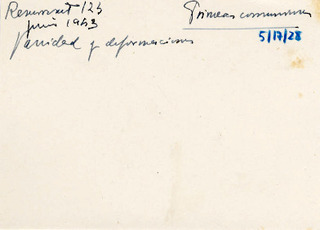 Primeras comuniones
5/17/28
Resurrexit 123
junio 1953
Vanidad y deformaciones